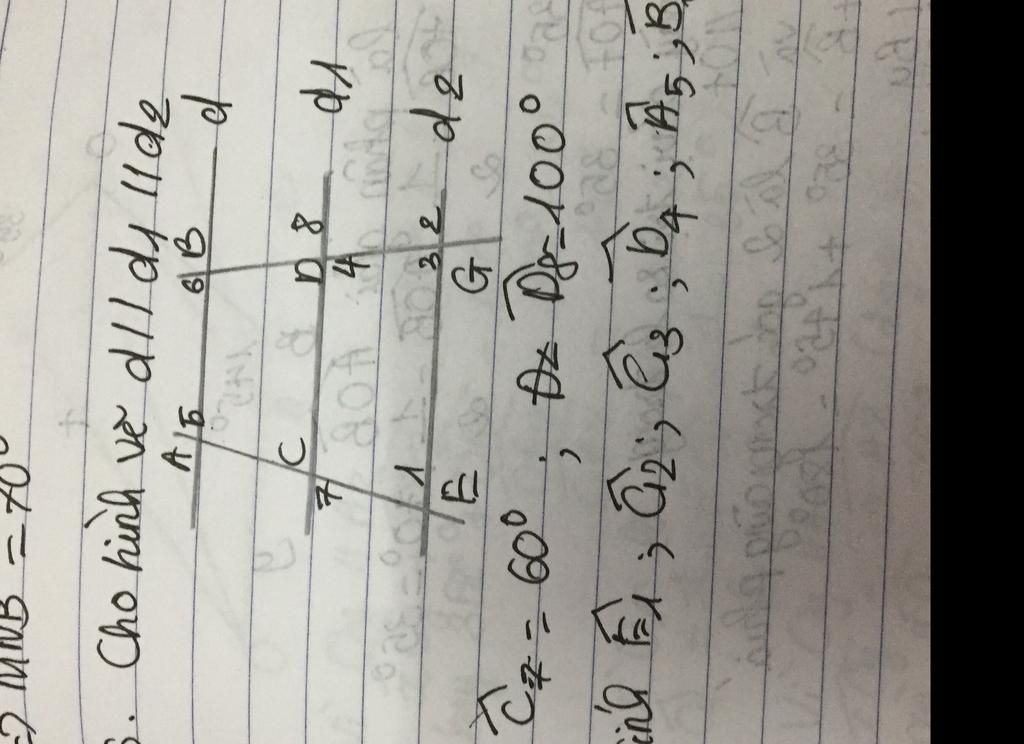 =) MNB = 70°
. Cho hình vẽ d // d1 // d2
A 5 6 B d
7 C D 8 d1
4
E 1 3 2 d2
G
C7 = 60° ; D8 = 100°
E1 ; G2 ; G3 ; D4 ; A5 ; B